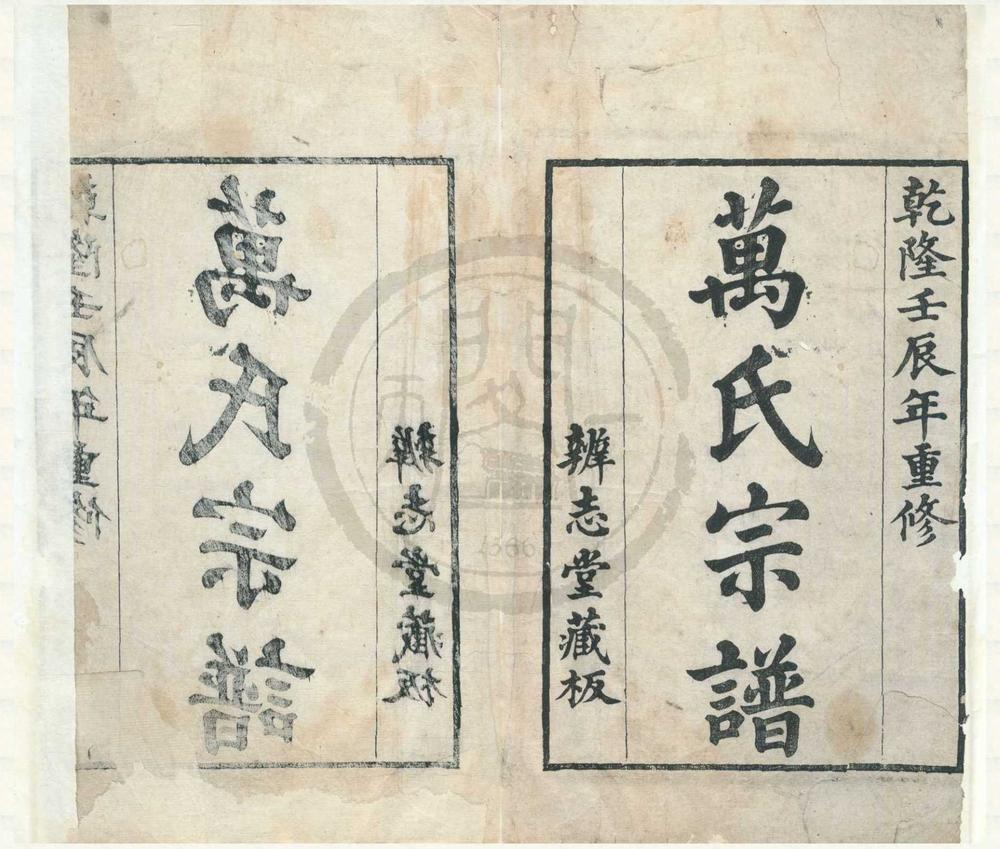 乾隆壬辰年重修
萬氏宗譜
辨志堂藏板
辨志堂藏板
萬氏宗譜
乾隆壬辰年重修
1566